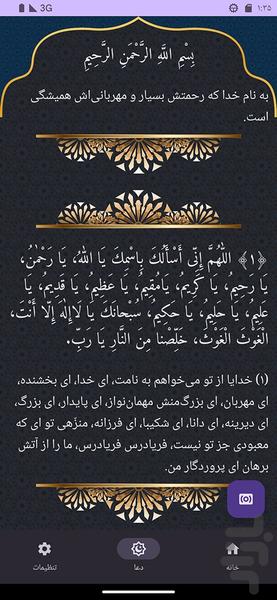 3G
۱:۳۵
بِسْمِ اللَّهِ الرَّحْمَنِ الرَّحِيمِ
به نام خدا که رحمتش بسیار و مهربانی‌اش همیشگی
است.
﴿۱﴾ اللَّهُمَّ إِنِّي أَسْأَلُكَ بِاسْمِكَ يَا اللَّهُ، يَا رَحْمٰنُ،
يَا رَحِيمُ، يَا كَرِيمُ، يَامُقِيمُ، يَا عَظِيمُ، يَا قَدِيمُ، يَا
عَلِيمُ، يَا حَلِيمُ، يَا حَكِيمُ، سُبْحَانَكَ يَا لَاإِلٰهَ إِلّا أَنْتَ،
الْغَوْثَ الْغَوْثَ، خَلِّصْنا مِنَ النَّارِ يَا رَبِّ.
(۱) خدایا از تو می‌خواهم به نامت، ای خدا، ای بخشنده،
ای مهربان، ای بزرگ‌منش مهمان‌نواز، ای پایدار، ای بزرگ،
ای دیرینه، ای دانا، ای شکیبا، ای فرزانه، منزّهی تو ای که
معبودی جز تو نیست، فریادرس فریادرس، ما را از آتش
برهان ای پروردگار من.
خانه
دعا
تنظیمات
بازار